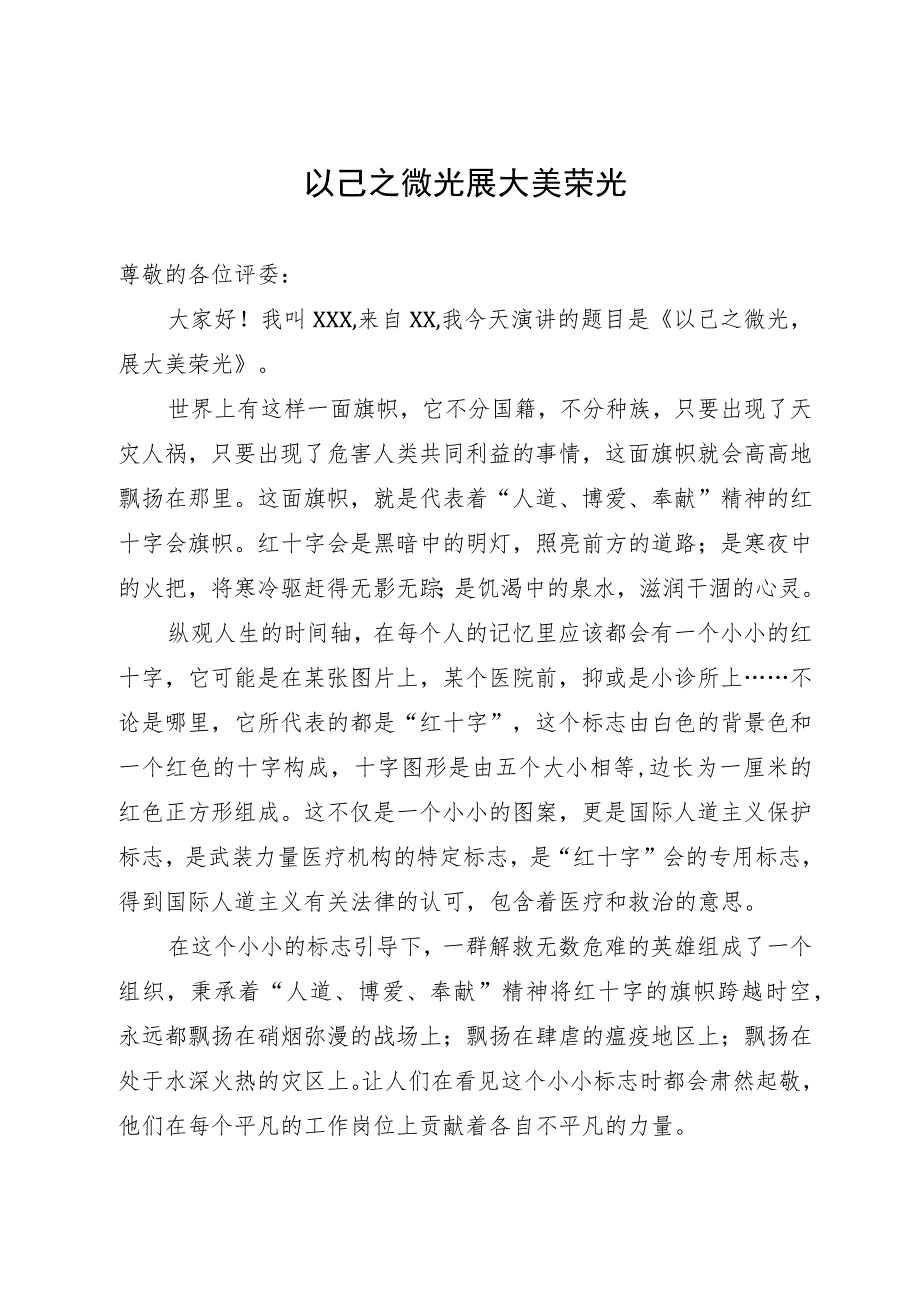 以己之微光展大美荣光
尊敬的各位评委：
大家好！我叫 XXX,来自 XX,我今天演讲的题目是《以己之微光，
展大美荣光》。
世界上有这样一面旗帜，它不分国籍，不分种族，只要出现了天
灾人祸，只要出现了危害人类共同利益的事情，这面旗帜就会高高地
飘扬在那里。这面旗帜，就是代表着“人道、博爱、奉献”精神的红
十字会旗帜。红十字会是黑暗中的明灯，照亮前方的道路；是寒夜中
的火把，将寒冷驱赶得无影无踪；是饥渴中的泉水，滋润干涸的心灵。
纵观人生的时间轴，在每个人的记忆里应该都会有一个小小的红
十字，它可能是在某张图片上，某个医院前，抑或是小诊所上……不
论是哪里，它所代表的都是“红十字”，这个标志由白色的背景色和
一个红色的十字构成，十字图形是由五个大小相等,边长为一厘米的
红色正方形组成。这不仅是一个小小的图案，更是国际人道主义保护
标志，是武装力量医疗机构的特定标志，是“红十字”会的专用标志，
得到国际人道主义有关法律的认可，包含着医疗和救治的意思。
在这个小小的标志引导下，一群解救无数危难的英雄组成了一个
组织，秉承着“人道、博爱、奉献”精神将红十字的旗帜跨越时空，
永远都飘扬在硝烟弥漫的战场上；飘扬在肆虐的瘟疫地区上；飘扬在
处于水深火热的灾区上。让人们在看见这个小小标志时都会肃然起敬，
他们在每个平凡的工作岗位上贡献着各自不平凡的力量。